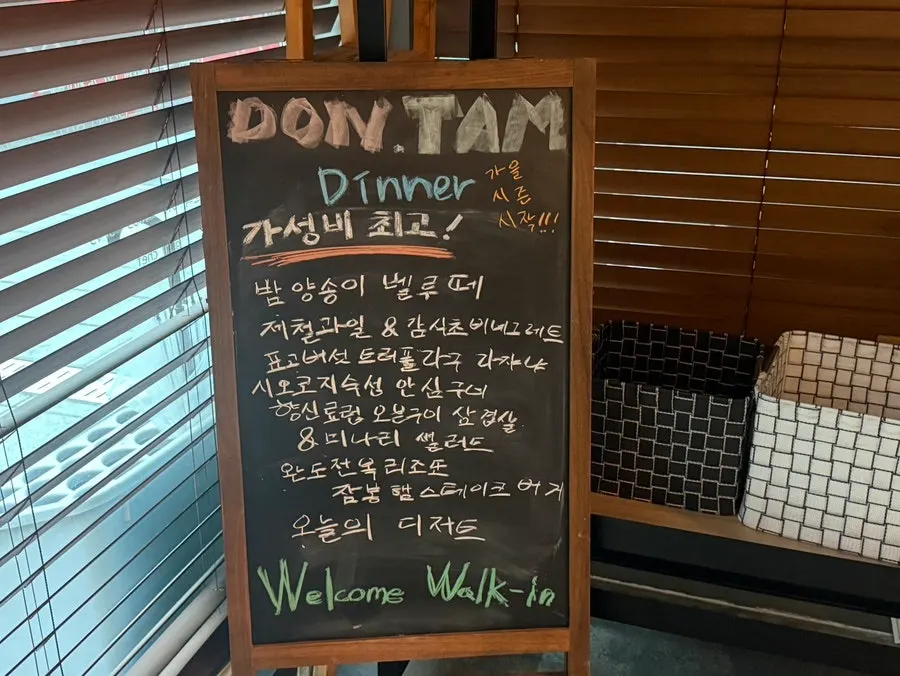 DON.TAM
Dinner
가을
시즌
시작!!!
가성비 최고!
밤 양송이 벨루떼
제철과일 & 감식초비네그레트
표고버섯 트러플라구 라자냐
시오코지숙성 안심구이
향신료럽 오븐구이 삼겹살
& 미나리 샐러드
완도전복리조또
잠봉햄스테이크버거
오늘의 디저트
Welcome Walk-in